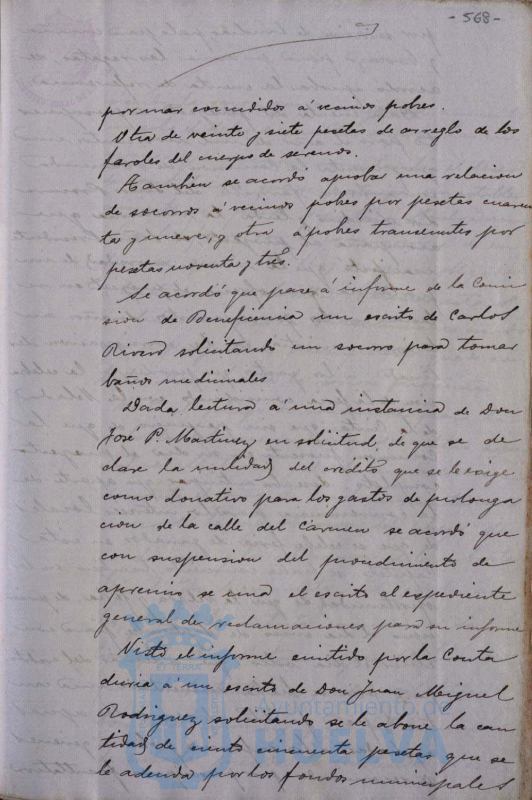 -568-
por mar concedidos á vecinos pobres.
Otra de veinte y siete pesetas de arreglo de los
faroles del cuerpo de serenos.
Tambien se acordó aprobar una relacion
de socorros á vecinos pobres por pesetas cuaren
ta y nueve, y otra á pobres transeuntes por
pesetas noventa y tres.
Se acordó que pase á informe de la Comi
sion de Beneficencia un escrito de Carlos
solicitando un socorro para tomar
baños medicinales
Dada lectura á una instancia de Don
José P. Martinez en solicitud de que se de
clare la nulidad del crédito que se le exige
como donativo para los gastos de prolonga
cion de la calle del Carmen se acordó que
con suspension del procedimiento de
apremio se una el escrito al espediente
general de reclamaciones para su informe
Visto el informe emitido por la Conta
duria á un escrito de Don Juan Miguel
Rodriguez solicitando se le abone la can
tidad de ciento cincuenta pesetas que se
le adeuda por los fondos municipales
Ayuntamiento de
HUELVA